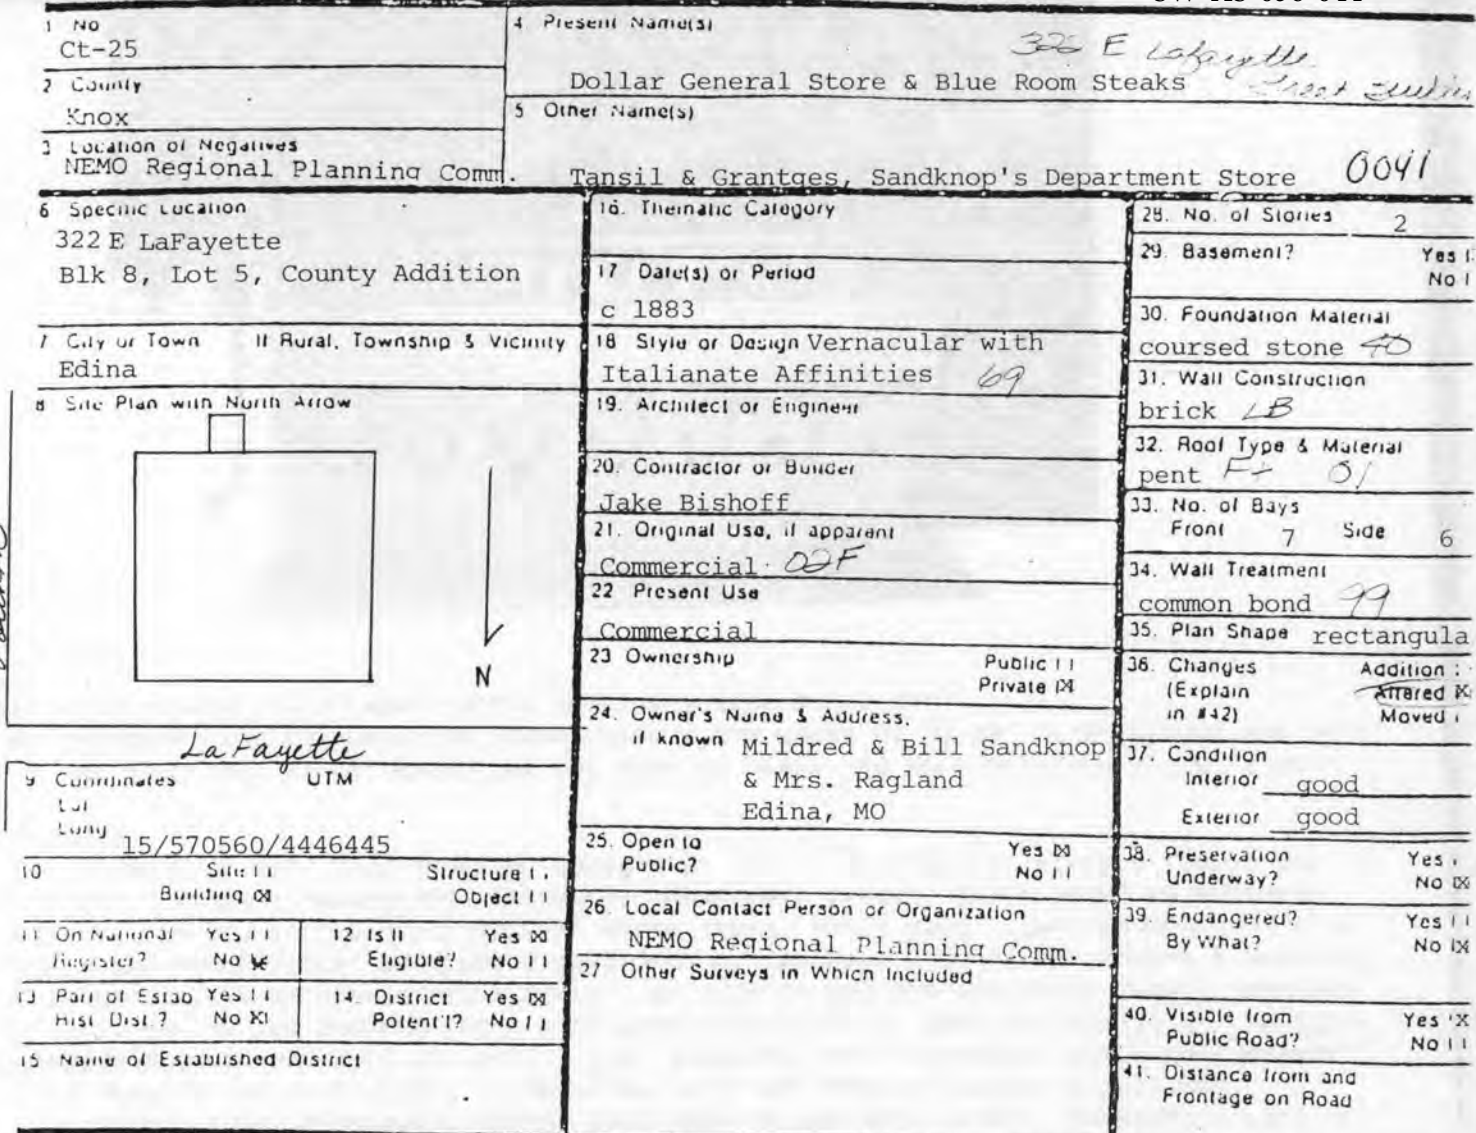 1 No
Ct-25
2 County
Knox
3 Location of Negatives
NEMO Regional Planning Comm.
4 Present Name(s)
326 E Lafayette
Dollar General Store & Blue Room Steaks
5 Other Name(s)
Tansil & Grantges, Sandknop's Department Store 0041
6 Specific Location
322 E LaFayette
Blk 8, Lot 5, County Addition
7 City or Town If Rural, Township & Vicinity
Edina
8 Site Plan with North Arrow
N
La Fayette
9 Coordinates UTM
Lat
Long
15/570560/4446445
10 Site [ ] Structure [ ]
Building [X] Object [ ]
11 On National Register? Yes [ ] No [X]
12 Is It Eligible? Yes [X] No [ ]
13 Part of Estab Hist. Dist.? Yes [ ] No [X]
14. District Potent'l? Yes [X] No [ ]
15 Name of Established District
16. Thematic Category
17 Date(s) or Period
c 1883
18 Style or Design Vernacular with
Italianate Affinities 69
19. Architect or Engineer
20. Contractor or Builder
Jake Bishoff
21. Original Use, if apparent
Commercial 02F
22 Present Use
Commercial
23 Ownership Public [ ]
Private [X]
24. Owner's Name & Address,
if known Mildred & Bill Sandknop
& Mrs. Ragland
Edina, MO
25. Open to Yes [X]
Public? No [ ]
26. Local Contact Person or Organization
NEMO Regional Planning Comm.
27 Other Surveys in Which Included
28. No. of Stories 2
29. Basement? Yes [
No [
30. Foundation Material
coursed stone 40
31. Wall Construction
brick LB
32. Roof Type & Material
pent 01
33. No. of Bays
Front 7 Side 6
34. Wall Treatment
common bond 99
35. Plan Shape rectangula
36. Changes Addition [
(Explain Altered [X]
in #42) Moved [
37. Condition
Interior good
Exterior good
38. Preservation Yes [
Underway? No [X]
39. Endangered? Yes [ ]
By What? No [X]
40. Visible from Yes [X]
Public Road? No [ ]
41. Distance from and
Frontage on Road